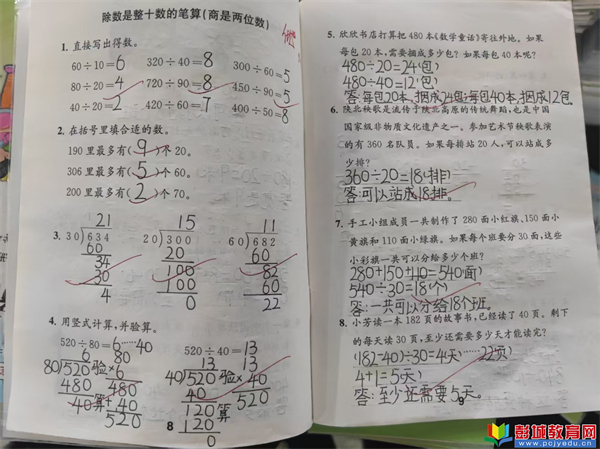 除数是整十数的笔算(商是两位数)
1. 直接写出得数。
60÷10=6 320÷40=8 300÷60=5
80÷20=4 720÷90=8 450÷90=5
40÷20=2 420÷60=7 400÷50=8
2. 在括号里填合适的数。
190里最多有(9)个20。
306里最多有(5)个60。
200里最多有(2)个70。
21 15 11
3. 30)634 20)300 60)682
60 20 60
34 100 82
30 100 60
4 0 22
4. 用竖式计算,并验算。
520÷80=6……40 520÷40=13
6 80 13 13
80)520 验 ×6 40)520 验 ×40
480 480 40 520
40 算 +40 120 算
520 120
0
8
5. 欣欣书店打算把480本《数学童话》寄往外地。如果
每包20本,需要捆成多少包?如果每包40本呢?
480÷20=24(包)
480÷40=12(包)
答:每包20本,捆成24包;每包40本,捆成12包
6. 陕北秧歌是流传于陕北高原的传统舞蹈,也是中国
国家级非物质文化遗产之一。参加艺术节秧歌表演
的有360名队员。如果每排站20人,可以站成多
少排?
360÷20=18(排)
答:可以站成18排。
7. 手工小组成员一共制作了280面小红旗、150面小
黄旗和110面小绿旗。如果每个班要分30面,这些
小彩旗一共可以分给多少个班?
280+150+110=540(面)
540÷30=18(个)
答:一共可以分给18个班。
8. 小芳读一本182页的故事书,已经读了40页。剩下
的每天读30页,至少还需要多少天才能读完?
(182-40)÷30=4(天)……22(页)
4+1=5(天)
答:至少还需要5天。
9
彭城教育网
www.pcjyedu.cn